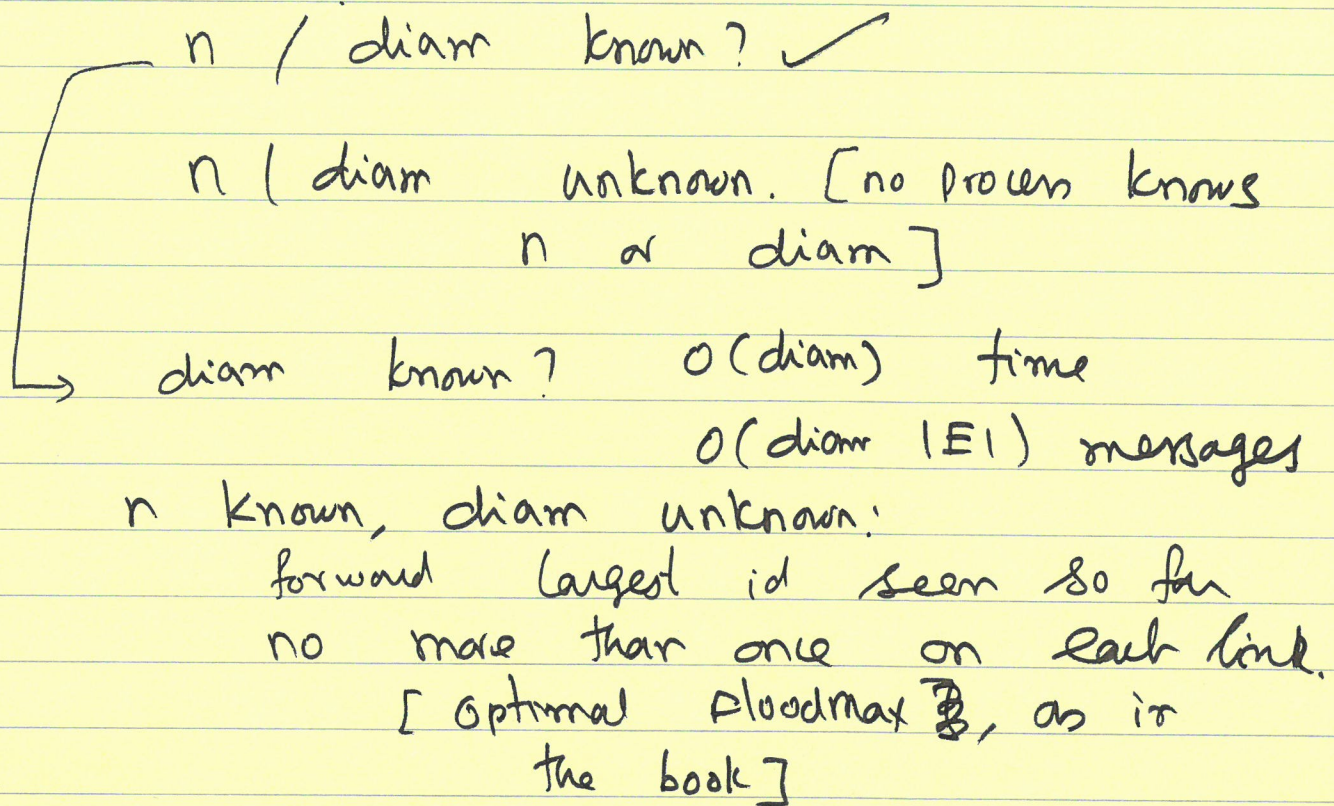 n / diam known? ✓
n / diam unknown. [no process knows
n or diam]
diam known? O(diam) time
O(diam |E|) messages
n known, diam unknown:
forward largest id seen so far
no more than once on each link.
[optimal Floodmax, as in
the book]